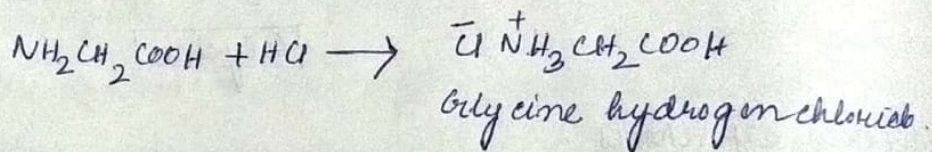 NH₂CH₂COOH + HCl ⟶ C̄l N⁺H₃CH₂COOH
Glycine hydrogen chloride.